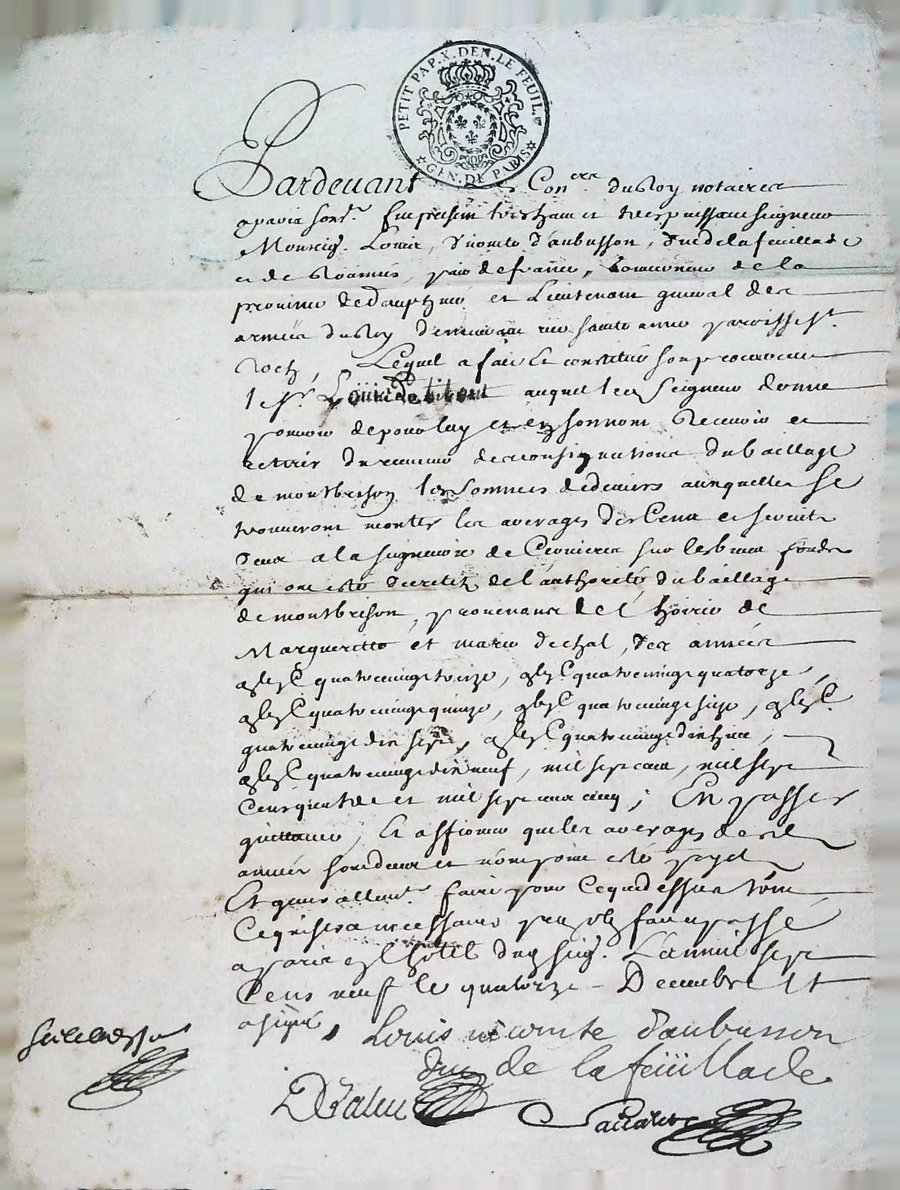 PETIT PAP. X. DEN. LE FEUIL.
★ GEN. DE PARIS ★
Pardevant les Con.ers du Roy notaires
a paris sous.
Monseig. Louis, Vicomte d'aubusson, duc de la feuillade
et de Roannés, pair de france, Gouverneur de la
province de dauphiné et Lieutenant general des
armées du Roy demeurant rue sainte anne paroisse st.
Roch, Lequel a fait et constitué son procureur
le sr. Louis auquel led. Seigneur donne
pouvoir de pour luy et en son nom Recevoir et
retirer du receveur des consignations du baillage
de montbrison les sommes de deniers ausquelles se
trouveront monter les arerages des Cens et servis
deus a la seigneurie de Cervieres sur les biens fonds
qui ont esté decretez de l'authorité du baillage
de montbrison, provenans de l'hoirie de
Margueritte et marie dechal, des années
quatrevingt treize, quatrevingt quatorze,
quatrevingt quinze, quatrevingt seize,
quatrevingt dix sept, quatrevingt dix huit,
quatrevingt dix neuf, mil sept cent, mil sept
Cens quatre et mil sept cens cinq; En passer
quittance, Et affirmer que les arerages desd.
années sont deus et n'ont point esté payez
Et generallem.t faire pour ce que dessus
Ce qui sera necessaire fait et passé
a paris en l'hotel dud. seig. L'an mil sept
Cens neuf le quatorze Decembre Et
a signé,
Louis vicomte d'aubusson
duc de la feüillade